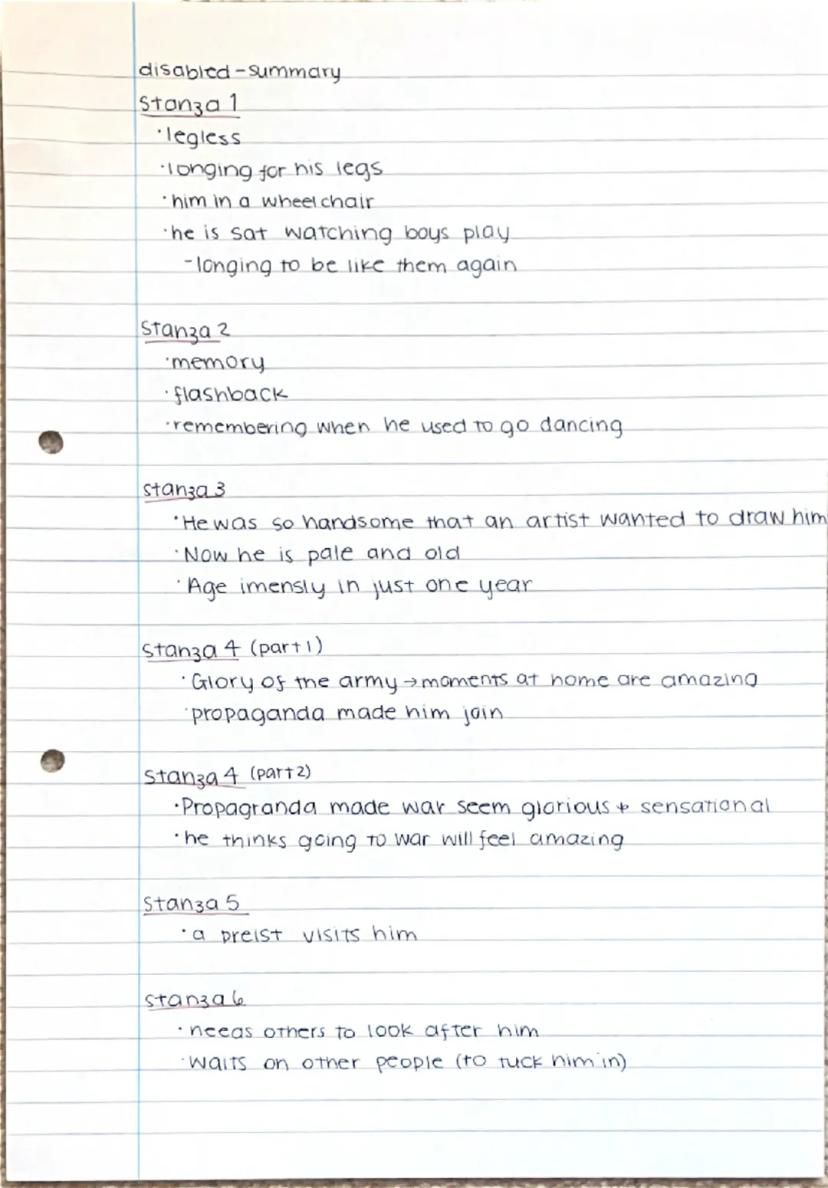 disabled - summary
Stanza 1
·legless
·longing for his legs
·him in a wheelchair
·he is sat watching boys play
-longing to be like them again
Stanza 2
·memory
·flashback
·remembering when he used to go dancing
stanza 3
·He was so handsome that an artist wanted to draw him
·Now he is pale and old
·Age imensly in just one year
Stanza 4 (part 1)
·Glory of the army → moments at home are amazing
·propaganda made him join
Stanza 4 (part 2)
·Propagranda made war seem glorious + sensational
·he thinks going to war will feel amazing
Stanza 5
·a preist visits him
Stanza 6
·needs others to look after him
·waits on other people (to tuck him in)